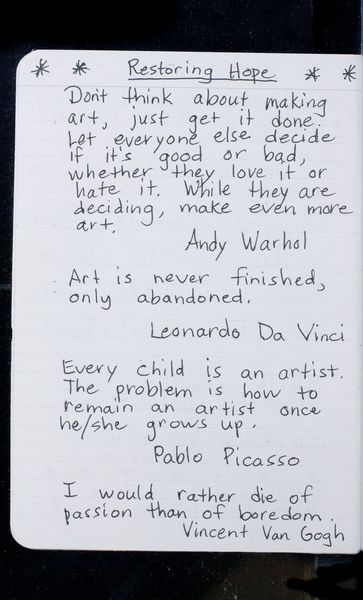 * * Restoring Hope * *
Don't think about making
art, just get it done.
Let everyone else decide
if it's good or bad,
whether they love it or
hate it. While they are
deciding, make even more
art.
Andy Warhol
Art is never finished,
only abandoned.
Leonardo Da Vinci
Every child is an artist.
The problem is how to
remain an artist once
he/she grows up.
Pablo Picasso
I would rather die of
passion than of boredom.
Vincent Van Gogh